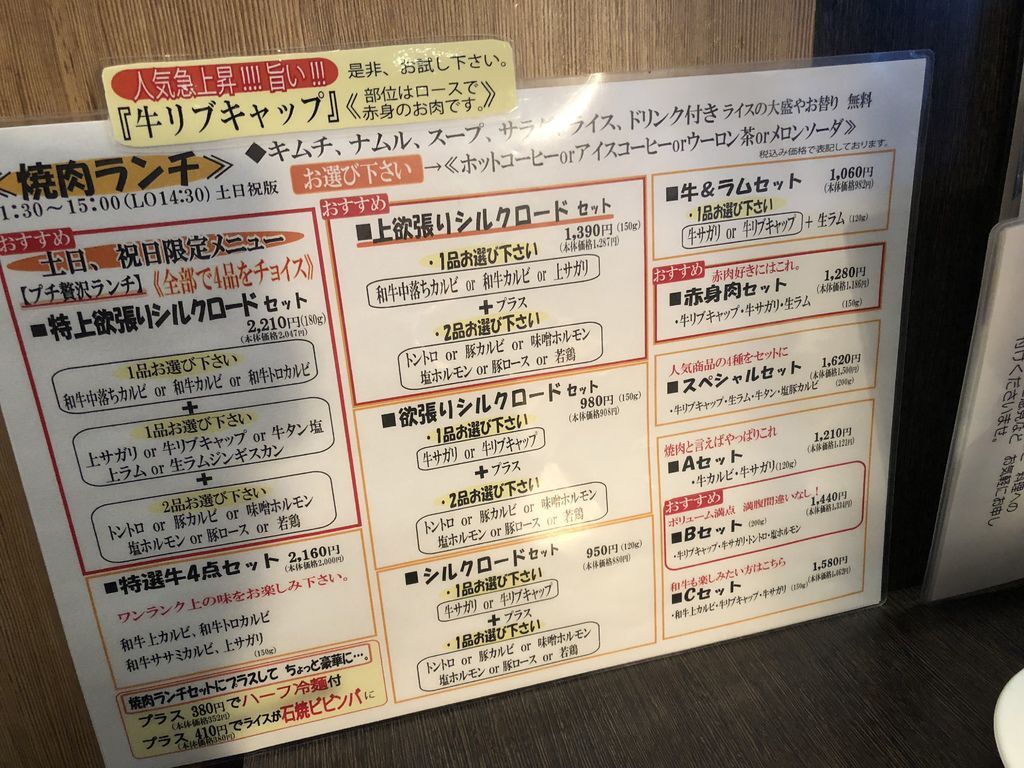 人気急上昇!!!! 旨い!!!
『牛リブキャップ』
是非、お試し下さい。
《部位はロースで
赤身のお肉です。》
《焼肉ランチ》
1:30～15:00(LO14:30) 土日祝版
◆キムチ、ナムル、スープ、サラ ライス、ドリンク付き ライスの大盛やお替り 無料
お選び下さい →《ホットコーヒーorアイスコーヒーorウーロン茶orメロンソーダ》
税込み価格で表記しております。
おすすめ
土日、祝日限定メニュー
【プチ贅沢ランチ】《全部で4品をチョイス》
■特上欲張りシルクロード セット
2,210円(180g)
(本体価格2,047円)
1品お選び下さい
和牛中落ちカルビ or 和牛カルビ or 和牛トロカルビ
+
1品お選び下さい
上サガリ or 牛リブキャップ or 牛タン塩
上ラム or 生ラムジンギスカン
+
2品お選び下さい
トントロ or 豚カルビ or 味噌ホルモン
塩ホルモン or 豚ロース or 若鶏
■特選牛4点セット 2,160円
(本体価格2,000円)
ワンランク上の味をお楽しみ下さい。
和牛上カルビ、和牛トロカルビ
和牛ササミカルビ、上サガリ
(150g)
焼肉ランチセットにプラスして ちょっと豪華に…。
プラス 380円でハーフ冷麺付
(本体価格352円)
プラス 410円でライスが石焼ビビンバに
(本体価格380円)
おすすめ
■上欲張りシルクロード セット
1,390円(150g)
(本体価格1,287円)
・1品お選び下さい
和牛中落ちカルビ or 和牛カルビ or 上サガリ
+プラス
・2品お選び下さい
トントロ or 豚カルビ or 味噌ホルモン
塩ホルモン or 豚ロース or 若鶏
■欲張りシルクロード セット
980円(150g)
(本体価格908円)
・1品お選び下さい
牛サガリ or 牛リブキャップ
+プラス
・2品お選び下さい
トントロ or 豚カルビ or 味噌ホルモン
塩ホルモン or 豚ロース or 若鶏
■シルクロードセット 950円(120g)
(本体価格880円)
・1品お選び下さい
牛サガリ or 牛リブキャップ
+プラス
・1品お選び下さい
トントロ or 豚カルビ or 味噌ホルモン
塩ホルモン or 豚ロース or 若鶏
■牛&ラムセット 1,060円
(本体価格982円)
・1品お選び下さい
牛サガリ or 牛リブキャップ + 生ラム (120g)
おすすめ 赤肉好きにはこれ。
1,280円
(本体価格1,186円)
■赤身肉セット
・牛リブキャップ・牛サガリ・生ラム (150g)
人気商品の4種をセットに
1,620円
(本体価格1,500円)
■スペシャルセット
・牛リブキャップ・生ラム・牛タン・塩豚カルビ (200g)
焼肉と言えばやっぱりこれ
1,210円
(本体価格1,121円)
■Aセット
・牛カルビ・牛サガリ(120g)
おすすめ
ボリューム満点 満腹間違いなし!
1,440円
(本体価格1,334円)
■Bセット (200g)
・牛リブキャップ・牛サガリ・トントロ・塩ホルモン
和牛も楽しみたい方はこちら
1,580円
(本体価格1,462円)
■Cセット
・和牛上カルビ・牛リブキャップ・牛サガリ (150g)
付けくださいませ。
お気軽にお申し